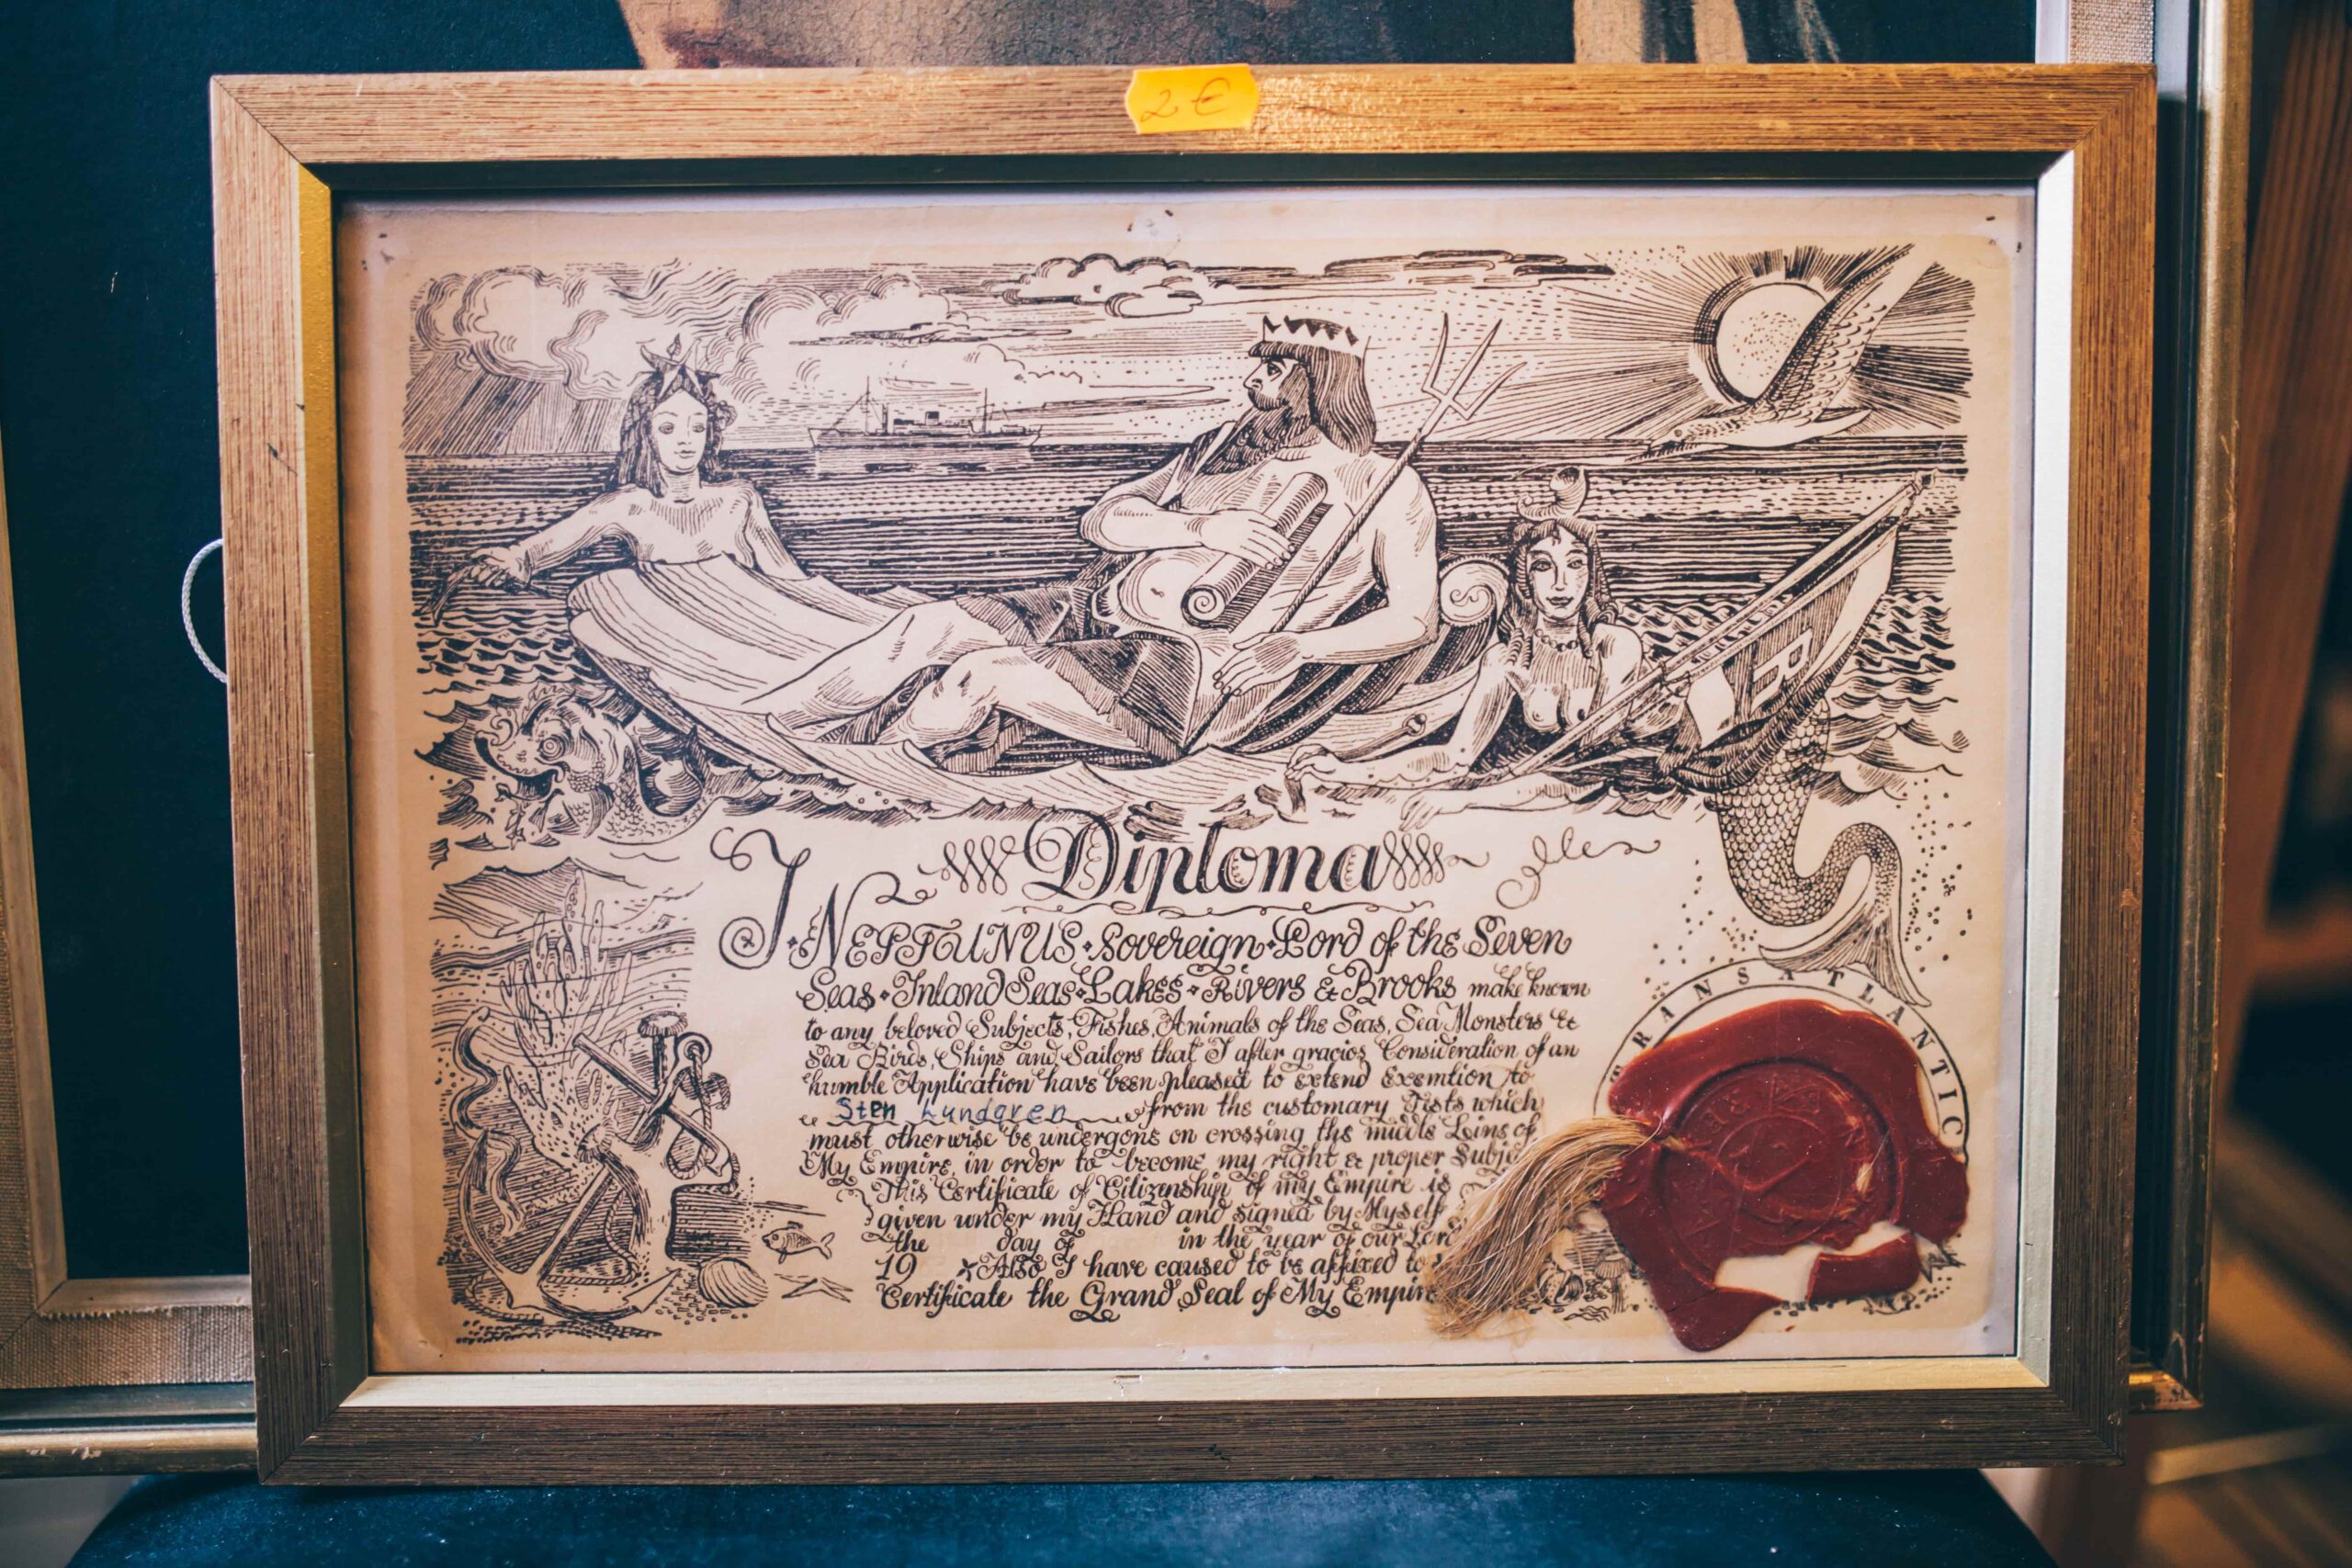 2 €
Diploma
I • NEPTUNUS • Sovereign • Lord of the Seven
Seas • Inland Seas • Lakes • Rivers & Brooks make known
to any beloved Subjects, Fishes, Animals of the Seas, Sea Monsters &
Sea Birds, Ships and Sailors that I after gracios Consideration of an
humble Application have been pleased to extend Exemtion to
Sten Lundgren from the customary Tests which
must otherwise be undergone on crossing the middle Leins of
My Empire, in order to become my right & proper
This Certificate of Citizenship of my Empire is
given under my Hand and signed by Myself
the day of in the year of our
19 Also I have caused to be affixed to
Certificate the Grand Seal of My
TRANSATLANTIC